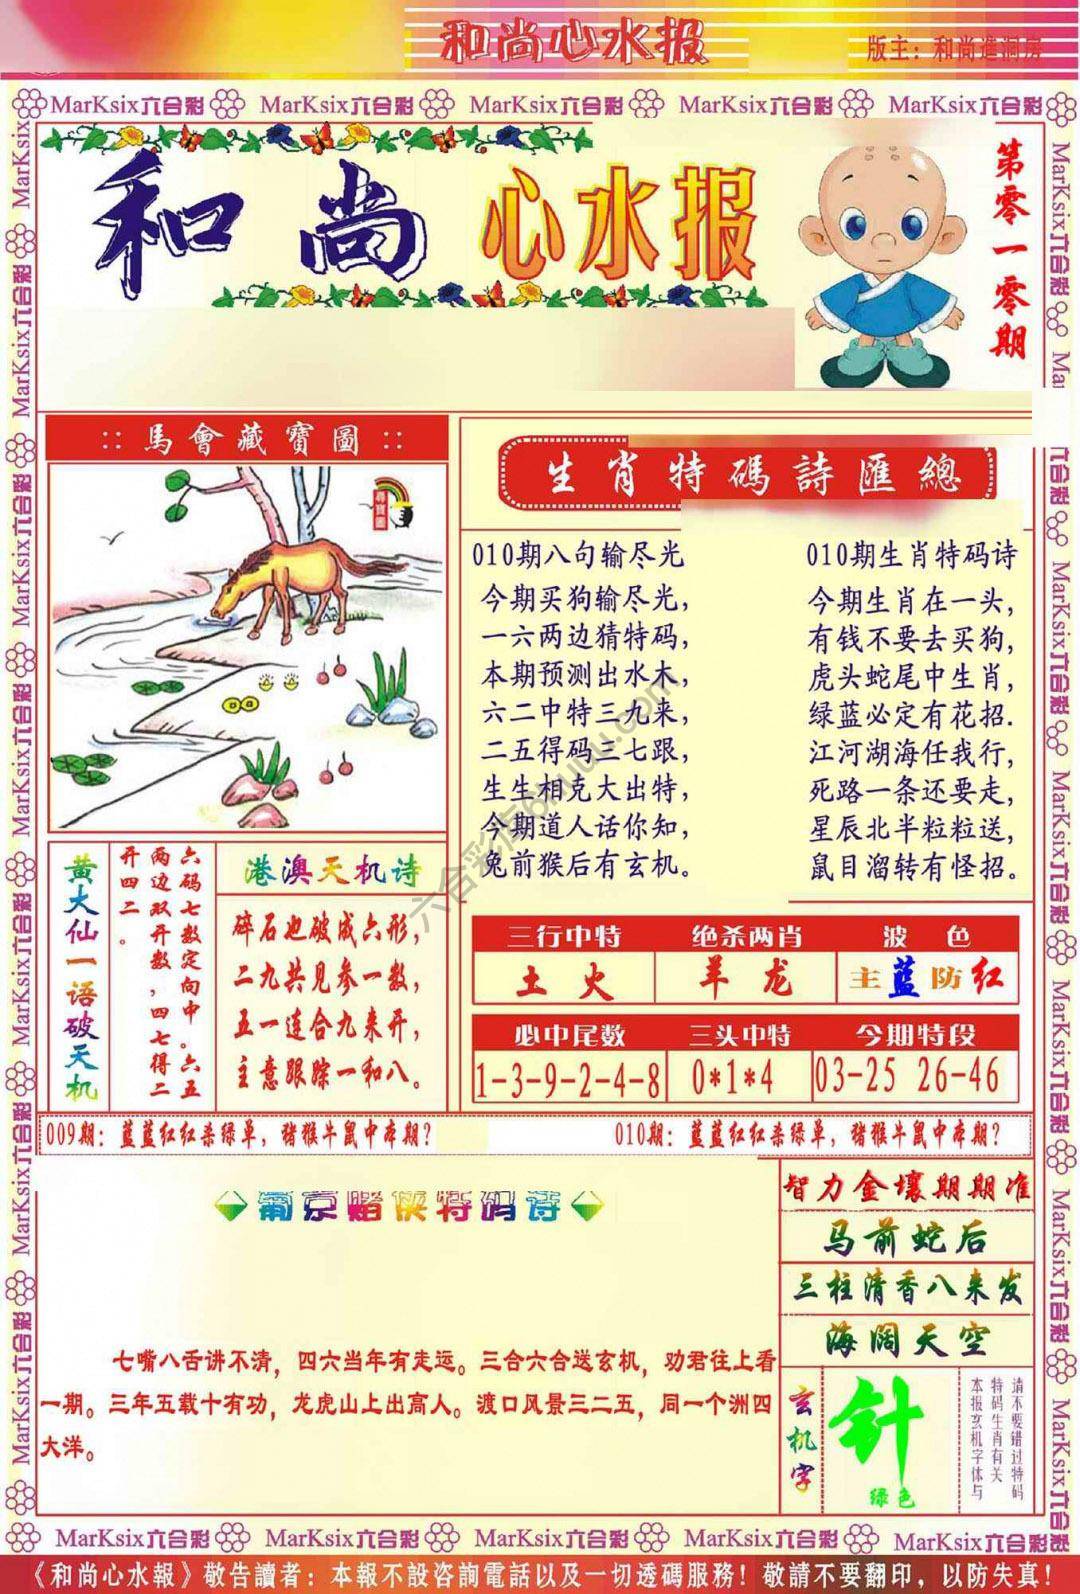 和尚心水报
版主：和尚進洞房
MarKsix六合彩 MarKsix六合彩 MarKsix六合彩 MarKsix六合彩 MarKsix六合彩
和尚心水报
第零一零期
::馬會藏寶圖::
尋寶圖
生肖特碼詩匯總
010期八句输尽光
今期买狗输尽光，
一六两边猜特码，
本期预测出水木，
六二中特三九来，
二五得码三七跟，
生生相克大出特，
今期道人话你知，
兔前猴后有玄机。
010期生肖特码诗
今期生肖在一头，
有钱不要去买狗，
虎头蛇尾中生肖，
绿蓝必定有花招.
江河湖海任我行，
死路一条还要走，
星辰北半粒粒送，
鼠目溜转有怪招。
六合彩库6huuu.com
黄大仙一语破天机
六码七数定向中。六五
两边双开数，四七得二
开四二。
港澳天机诗
碎石也破成六形，
二九共见参一数，
五一连合九来开，
主意跟踪一和八。
三行中特 绝杀两肖 波色
土火 羊龙 主蓝防红
必中尾数 三头中特 今期特段
1-3-9-2-4-8 0*1*4 03-25 26-46
009期：蓝蓝红红杀绿单，猪猴牛鼠中本期？
010期：蓝蓝红红杀绿单，猪猴牛鼠中本期？
葡京赌侠特码诗
七嘴八舌讲不清，四六当年有走运。三合六合送玄机，劝君往上看
一期。三年五载十有功，龙虎山上出高人。渡口风景三二五，同一个洲四
大洋。
智力金壤期期准
马前蛇后
三柱清香八来发
海阔天空
玄机字
针
绿色
请不要错过特码
特码生肖有关
本报玄机字体与
MarKsix六合彩 MarKsix六合彩 MarKsix六合彩 MarKsix六合彩 MarKsix六合彩
《和尚心水報》敬告讀者：本報不設咨詢電話以及一切透碼服務！敬請不要翻印，以防失真！